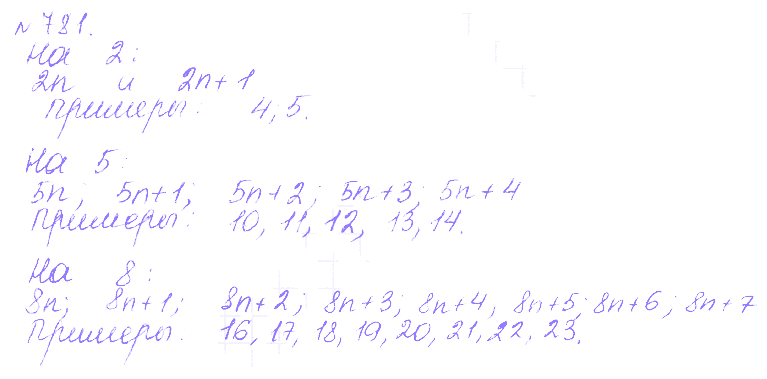 № 781.
На 2:
2n и 2n+1
Примеры: 4; 5.
На 5:
5n; 5n+1; 5n+2; 5n+3; 5n+4
Примеры: 10, 11, 12, 13, 14.
На 8:
8n; 8n+1; 8n+2; 8n+3; 8n+4, 8n+5; 8n+6; 8n+7
Примеры. 16, 17, 18, 19, 20, 21, 22, 23.